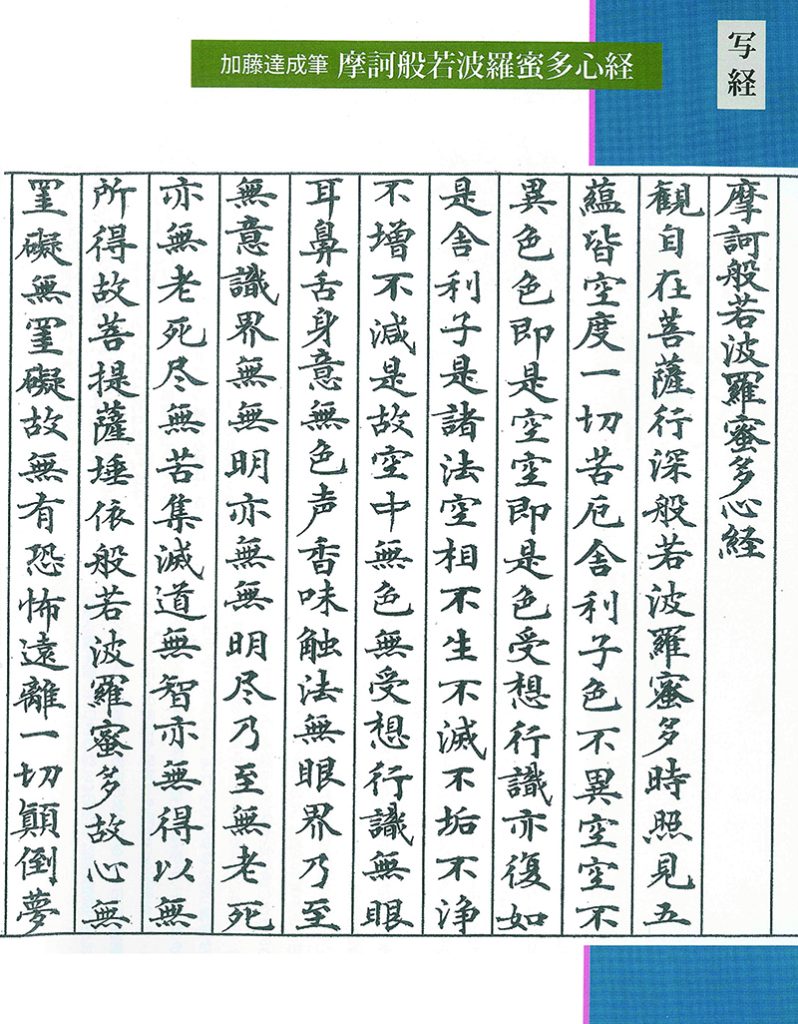 写経
加藤達成筆 摩訶般若波羅蜜多心経
摩訶般若波羅蜜多心経
観自在菩薩行深般若波羅蜜多時照見五
蘊皆空度一切苦厄舎利子色不異空空不
異色色即是空空即是色受想行識亦復如
是舎利子是諸法空相不生不滅不垢不浄
不増不減是故空中無色無受想行識無眼
耳鼻舌身意無色声香味触法無眼界乃至
無意識界無無明亦無無明尽乃至無老死
亦無老死尽無苦集滅道無智亦無得以無
所得故菩提薩埵依般若波羅蜜多故心無
罣礙無罣礙故無有恐怖遠離一切顛倒夢